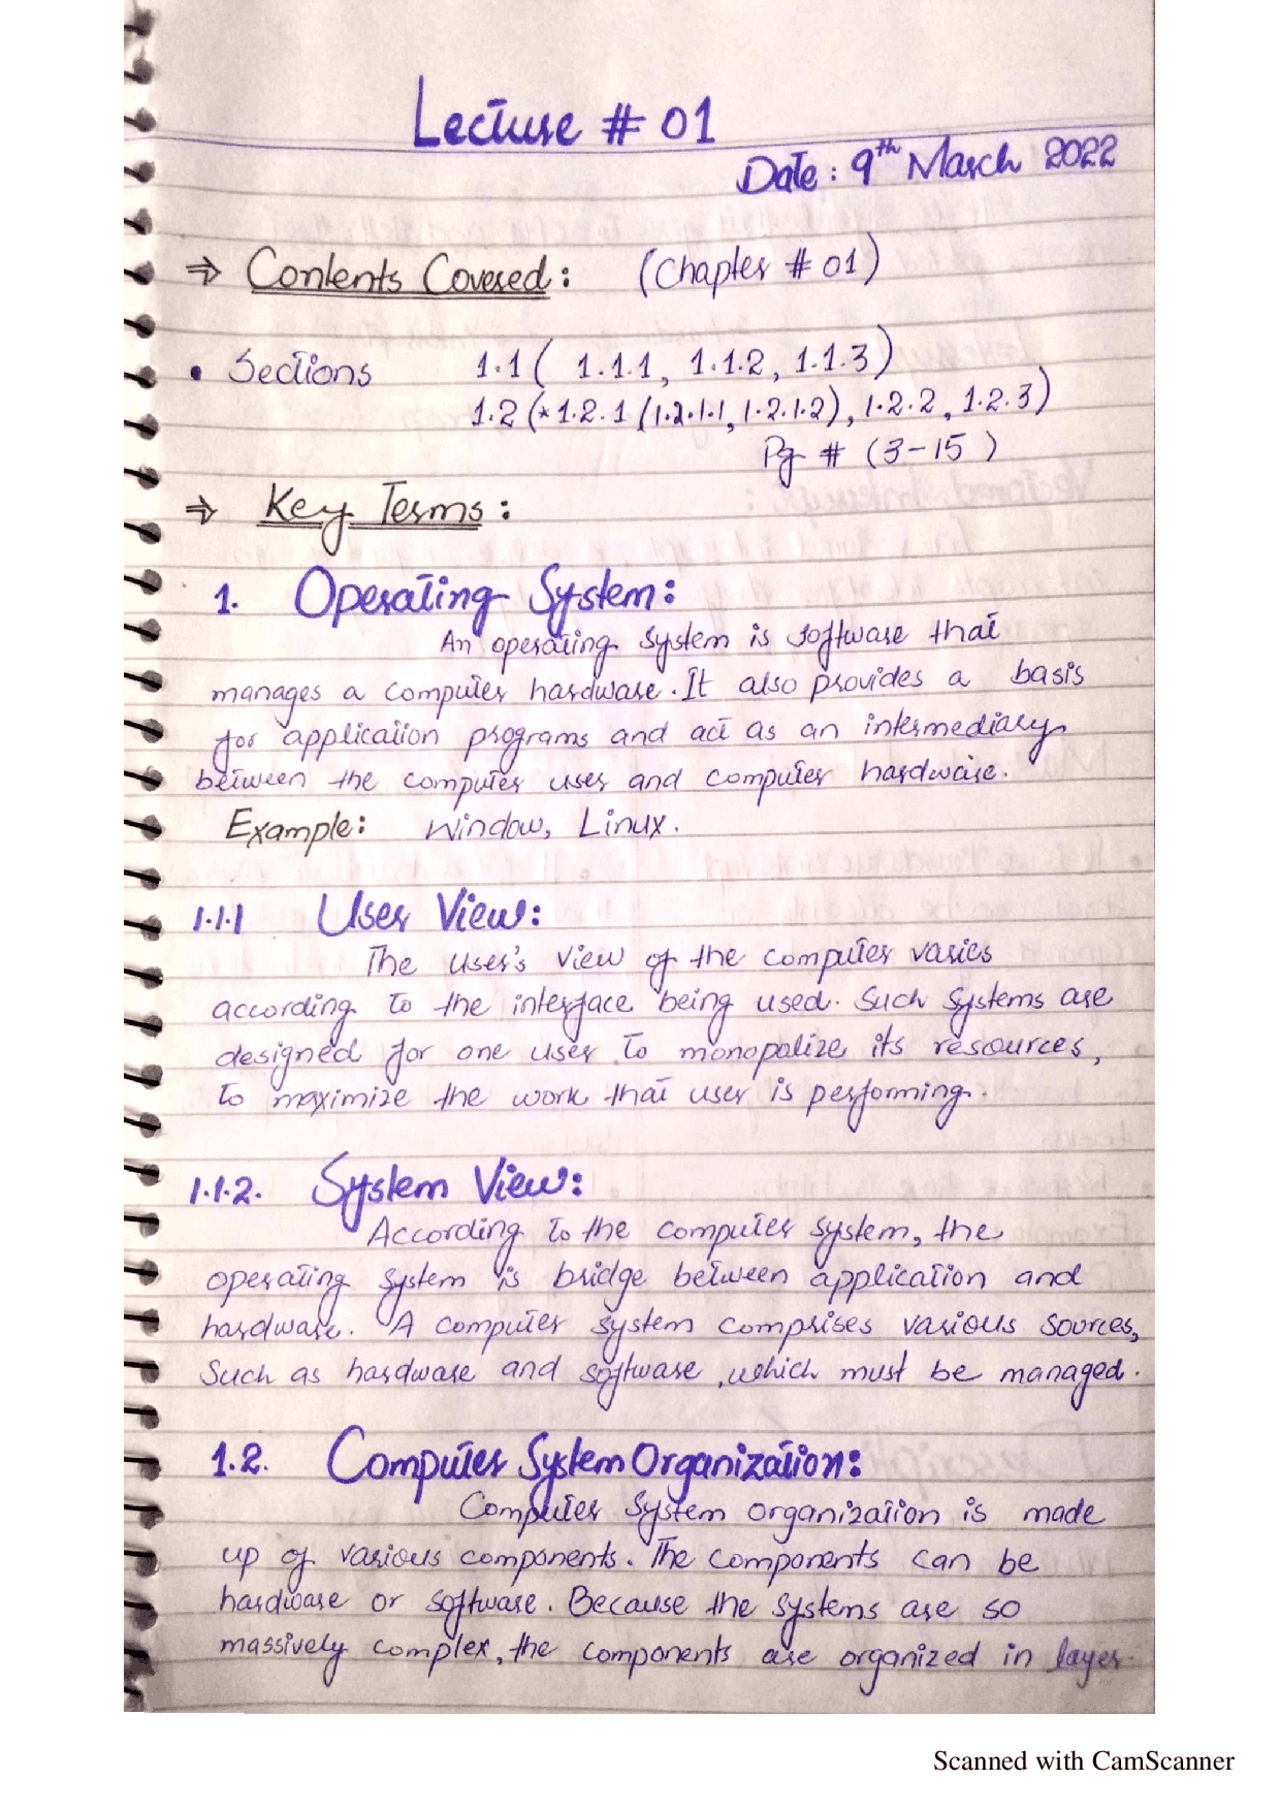 Lecture # 01
Date: 9th March 2022
⇒ Contents Covered: (Chapter # 01)
• Sections 1.1 ( 1.1.1, 1.1.2, 1.1.3 )
1.2 (* 1.2.1 (1.2.1.1, 1.2.1.2), 1.2.2, 1.2.3)
Pg # (3-15 )
⇒ Key Terms:
1. Operating System:
An operating system is software that
manages a computer hardware. It also provides a basis
for application programs and act as an intermediary
between the computer user and computer hardware.
Example: Window, Linux.
1.1.1 User View:
The user's view of the computer varies
according to the interface being used. Such systems are
designed for one user to monopolize its resources,
to maximize the work that user is performing.
1.1.2. System View:
According to the computer system, the
operating system is bridge between application and
hardware. A computer system comprises various sources,
Such as hardware and software, which must be managed.
1.2. Computer System Organization:
Computer System organization is made
up of various components. The components can be
hardware or software. Because the systems are so
massively complex, the components are organized in layer.
Scanned with CamScanner